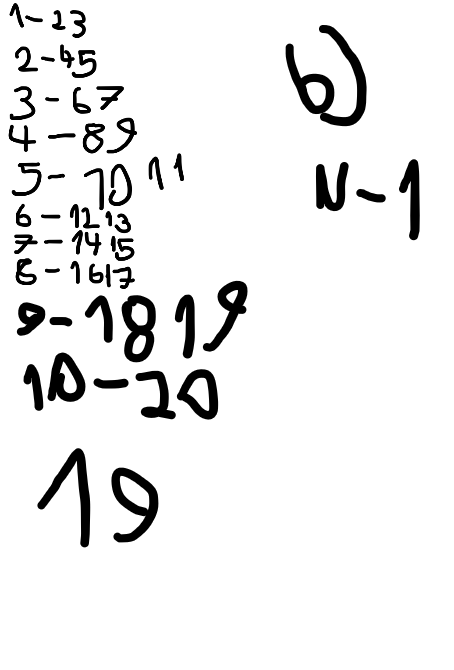 1-23
2-45
3-67
4-89
5-10 11
6-12 13
7-14 15
8-16 17
9-18 19
10-20
19
b)
N-1